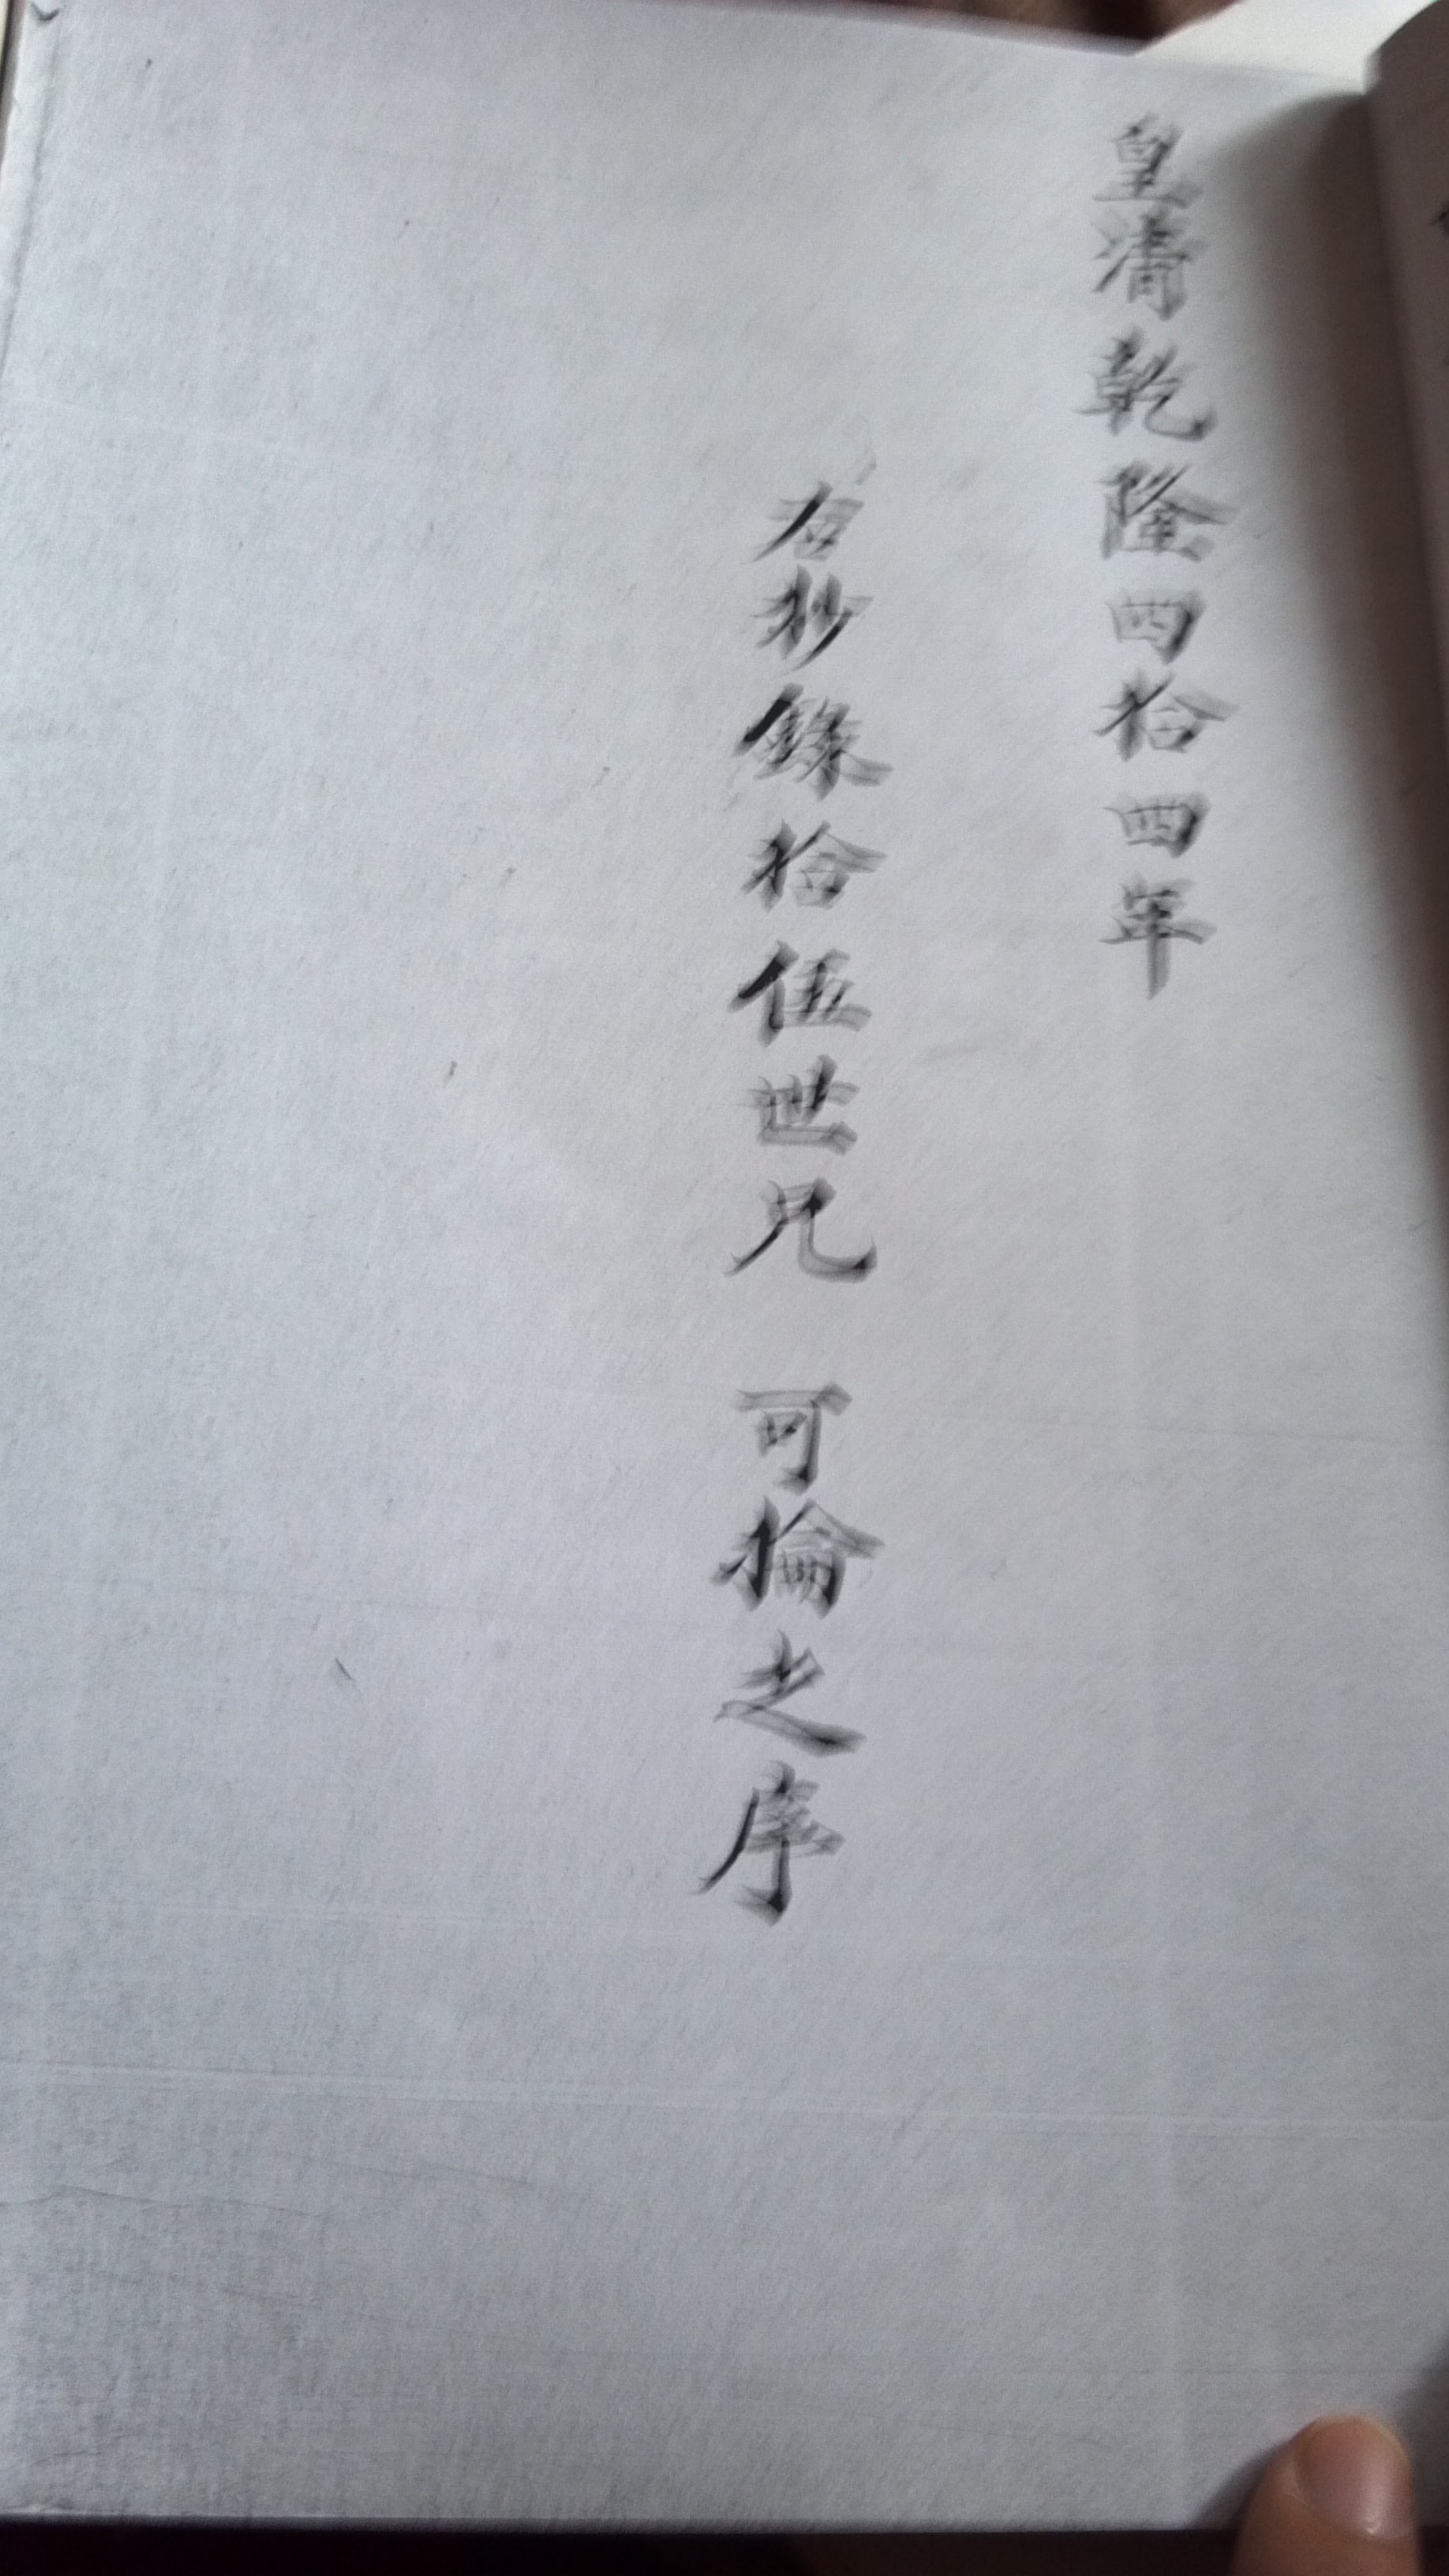 皇清乾隆四拾四年
右抄錄拾伍世兄 可掄之序